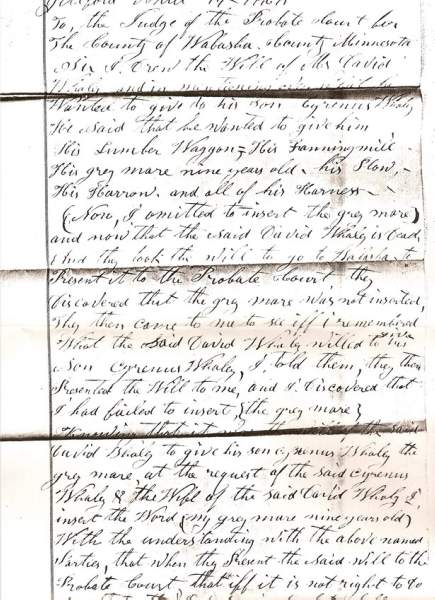 To, the Judge of the Probate Court for
The County of Wabasha. County Minnesota
Sir I. Drew the Will of Mr David
Whaly and in
Wanted to give to his son Cyrenus Whaly
He Said that he wanted to give him
His Lumber Waggon, His Fanningmill
His grey mare nine years old, his Plow,
His Harrow. and all of his Harness
(Now, I omitted to insert the grey mare)
and now that the Said David Whaly is Dead,
And they took the Will to go to Wabasha to
Present it to the Probate Court they
Discovered that the grey mare was not inserted,
They then come to me to see iff i remembered
What the Said David Whaly willed to give his
Son Cyrenus Whaly, I told them, they then
Presented the Will to me, and I. Discovered that
I had failed to insert (the grey mare)
that it was the of the said
David Whaly to give his son Cyrenus Whaly the
grey mare, at the request of the Said Cyrenus
Whaly & the Wife of the Said David Whaly I.
insert the Word (my grey mare nine years old)
With the understanding with the above named
Parties, that when they Present the Said will to the
Probate Court that iff it is not right to do